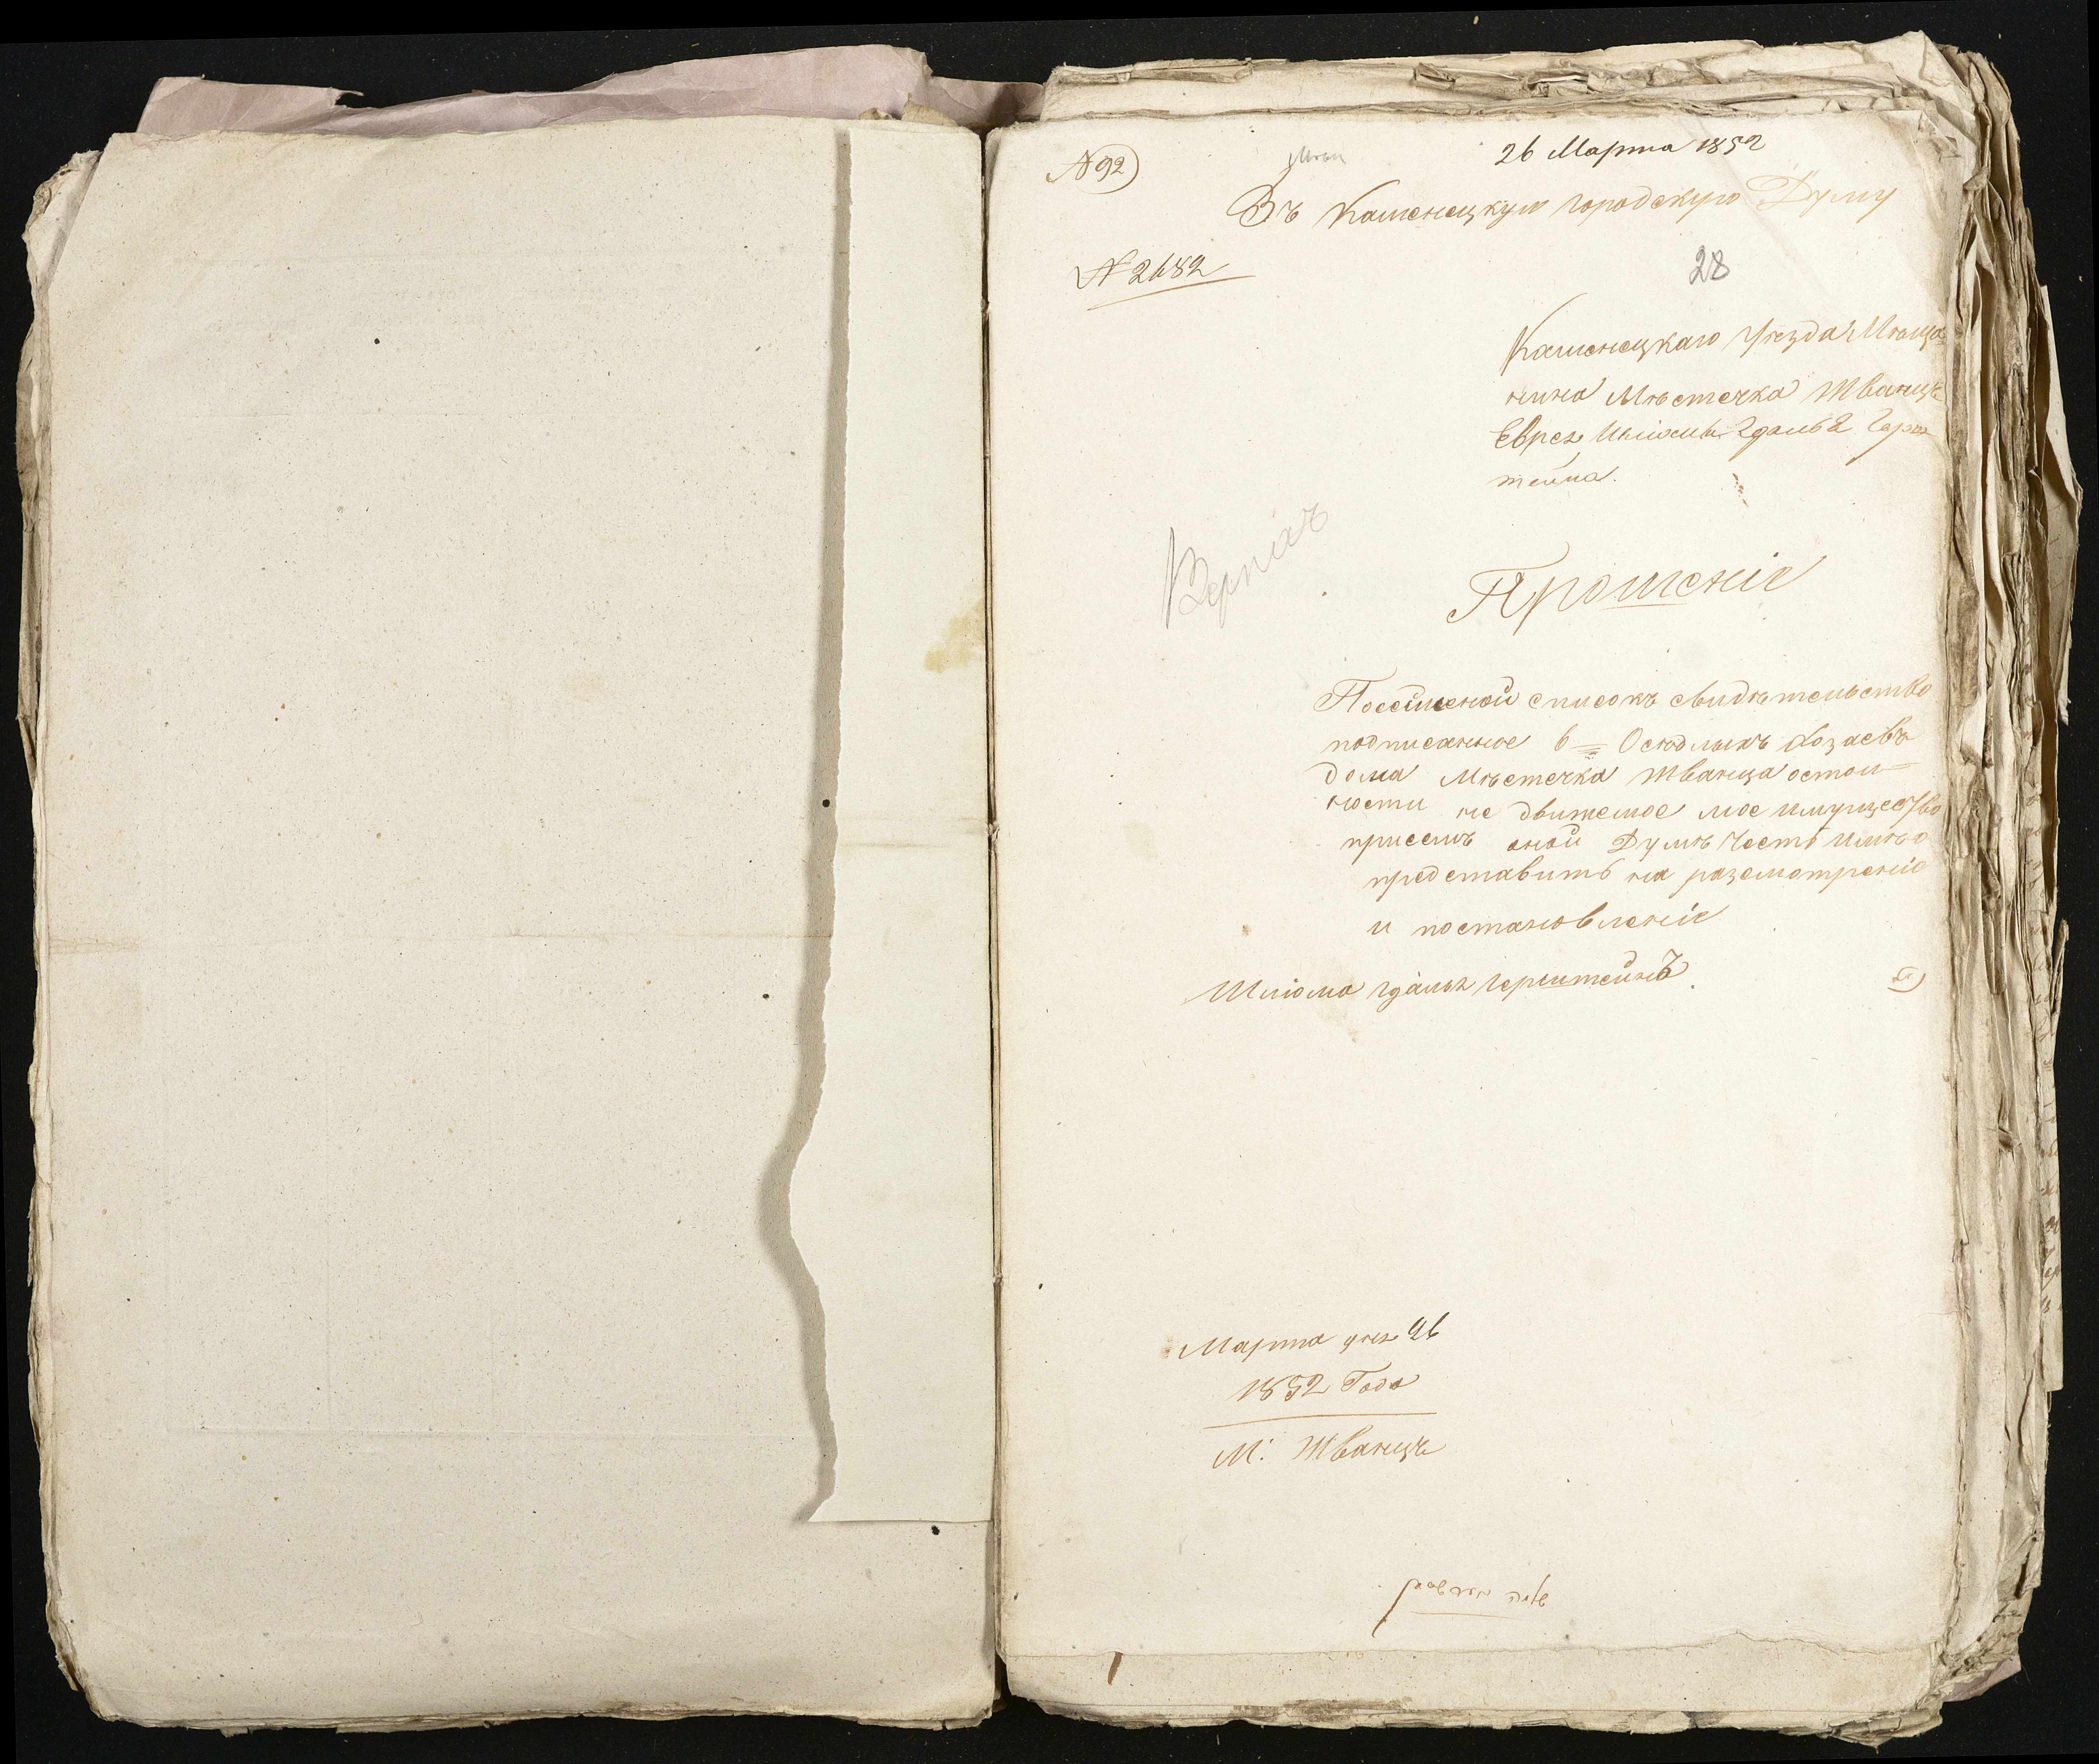 № 92
26 Марта 1852
Въ Каменецкую городскую Думу
№ 2682
28
Каменецкаго Уезда Мѣща=
нина Мѣстечка Жванца
Еврея Шліомы Гдаля Герш
тейна.
Прошеніе
Посѣмейной списокъ свидѣтельство
подписанное 6 = Оседлыхъ Хозаевъ
дома Мѣстечка Жванца остои=
ности не движемое мое имущество
присемъ оной Думѣ Честь имѣю
представить на разсмотреніе
и постановленіе
Шліома Гдаля Герштейнъ.
Марта дня 26
1852 Года
М: Жванцъ